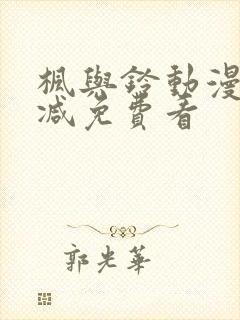 楓與鈴動漫
減免費看
郭光華